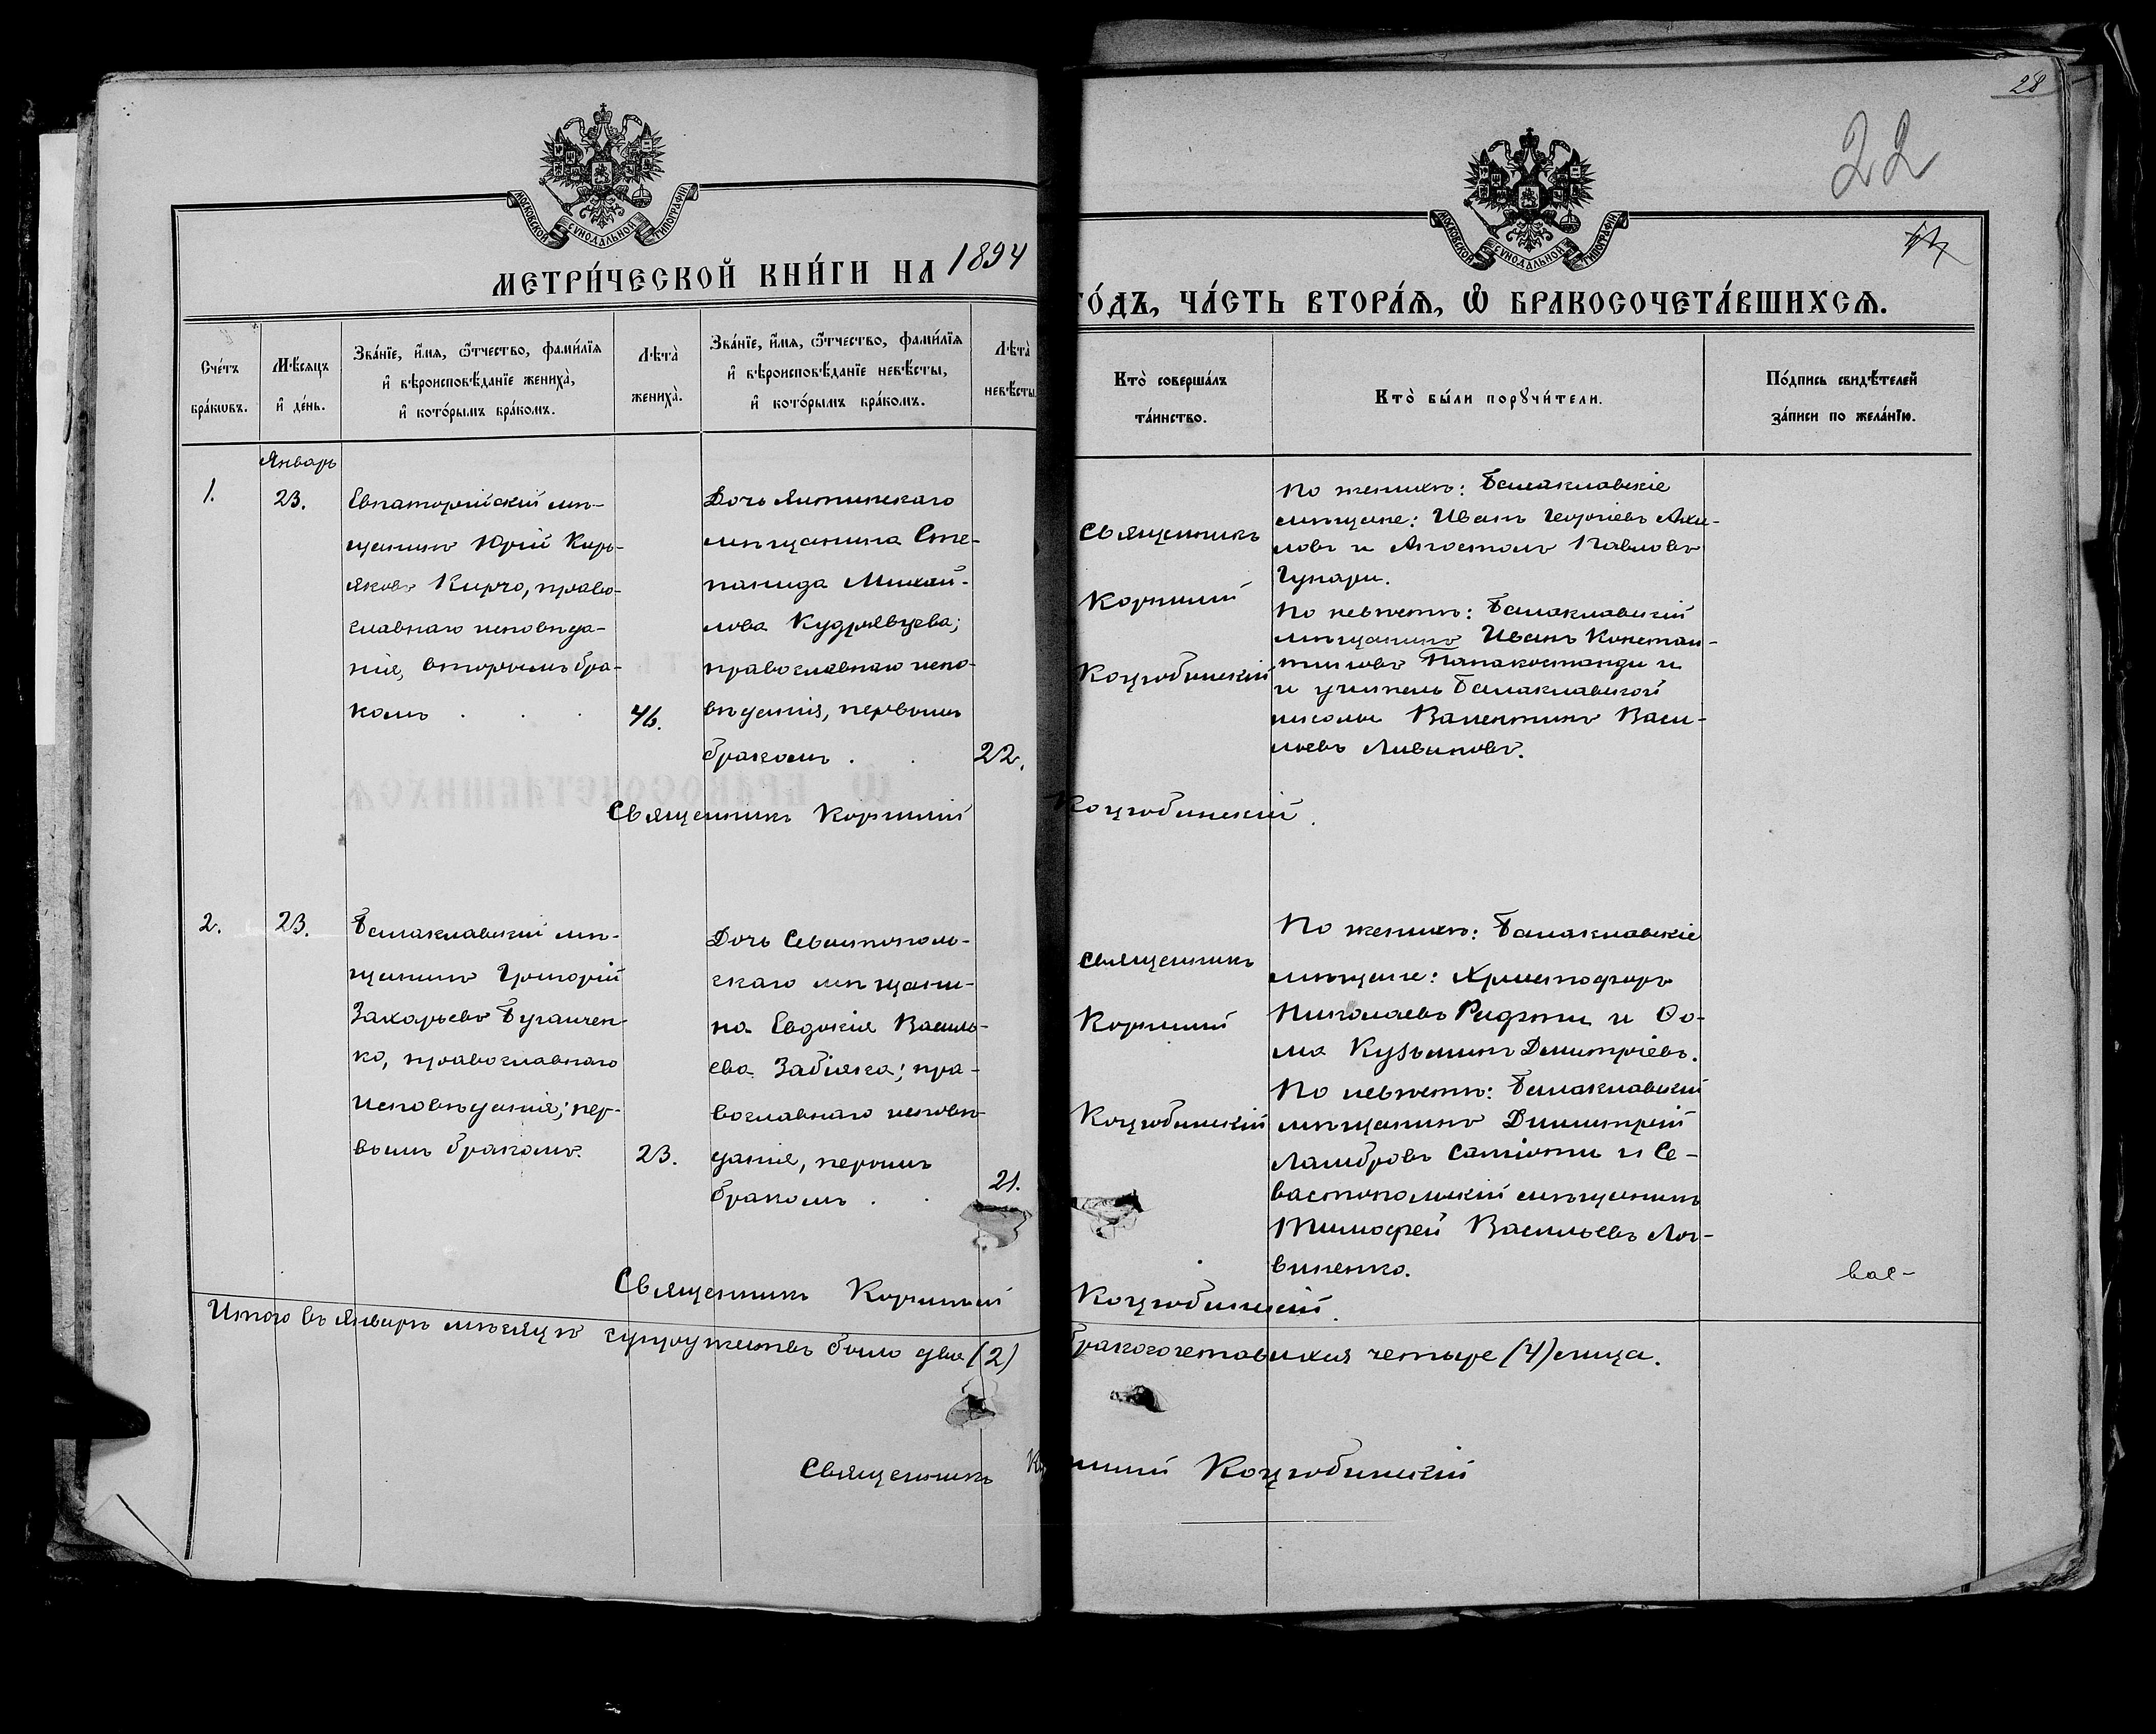 28
22
МОСКОВСКОЙ СѴНОДАЛЬНОЙ ТИПОГРАФІИ
МОСКОВСКОЙ СѴНОДАЛЬНОЙ ТИПОГРАФІИ
МЕТРИ́ЧЕСКОЙ КНИ́ГИ НА 1894
ГО́ДЪ, ЧА́СТЬ ВТОРА́Ѧ, Ѽ БРАКОСОЧЕТА́ВШИХСѦ.
Сче́тъ
бра́кѡвъ.
Мѣ́сѧцъ
и҆ де́нь.
Зва́нїе, и҆́мѧ, ѻ҆́тчество, фамі́лїѧ
и҆ вѣроисповѣ́данїе жениха̀,
и҆ кото́рымъ бра́комъ.
Лѣ́та
жениха̀.
Зва́нїе, и҆́мѧ, ѻ҆́тчество, фамі́лїѧ
и҆ вѣроисповѣ́данїе невѣ́сты,
и҆ кото́рымъ бра́комъ.
Лѣ́та
невѣ́сты.
Кто̀ соверша́лъ
та́инство.
Кто̀ бы́ли порꙋчи́тели.
По́дпись свидѣ́телей
за́писи по жела́нїю.
Январь
1.
23.
Евпаторійскій мѣ-
щанинъ Юрій Кирь-
яковъ Кирчо, право-
славнаго исповѣда-
нія, вторымъ бра-
комъ . . .
46.
Дочь Ялтинскаго
мѣщанина Сте-
панида Михай-
лова Кудрявцева;
православнаго испо-
вѣданія, первымъ
бракомъ . .
22.
Священникъ
Корнилій
Коцюбинскій
По женихѣ: Балаклавскіе
мѣщане: Иванъ Георгіевъ
и Апостолъ Павловъ
По невѣстѣ: Балаклавскій
мѣщанинъ Иванъ Констан-
тиновъ Папакостанди и
и учитель Балаклавской
школы Валентинъ Васи-
льевъ Ливановъ.
Священникъ Корнилій Коцюбинскій.
2.
23.
Балаклавскій мѣ-
щанинъ Григорій
Захарьевъ
православнаго
исповѣданія; пер-
вымъ бракомъ.
23.
Дочь Севастополь-
скаго мѣщани-
на Евдокія Василь-
ева Забіяка; пра-
вославнаго исповѣ-
данія, первымъ
бракомъ . .
21.
Священникъ
Корнилій
Коцюбинскій
По женихѣ: Балаклавскіе
мѣщане: Христофоръ
Николаевъ и Ѳо-
ма Кузьминъ Дмитріевъ.
По невѣстѣ: Балаклавскій
мѣщанинъ Димитрій
Ламбровъ Сатіоти и Се-
вастопольскій мѣщанинъ
Тимофей Васильевъ Лог-
виненко.
вас-
Священникъ Корнилій Коцюбинскій.
Итого въ Январѣ мѣсяцѣ супружествъ было два (2) бракосочетавшихся четыре (4) лица.
Священникъ Корнилій Коцюбинскій